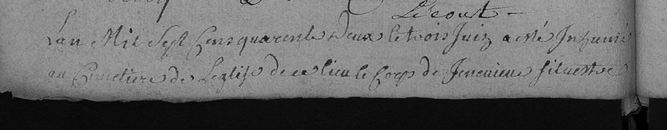 Lescout
Lan Mil Sept Cens quarente deux le trois Juin a eté Inhumé
au Cimetiere de Leglise de ce lieu le Corps de Jenevieve Silvestre